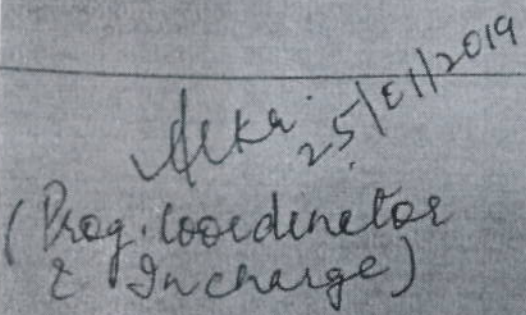 Alka 25/01/2019
(Prog. Coordinator
& Incharge)